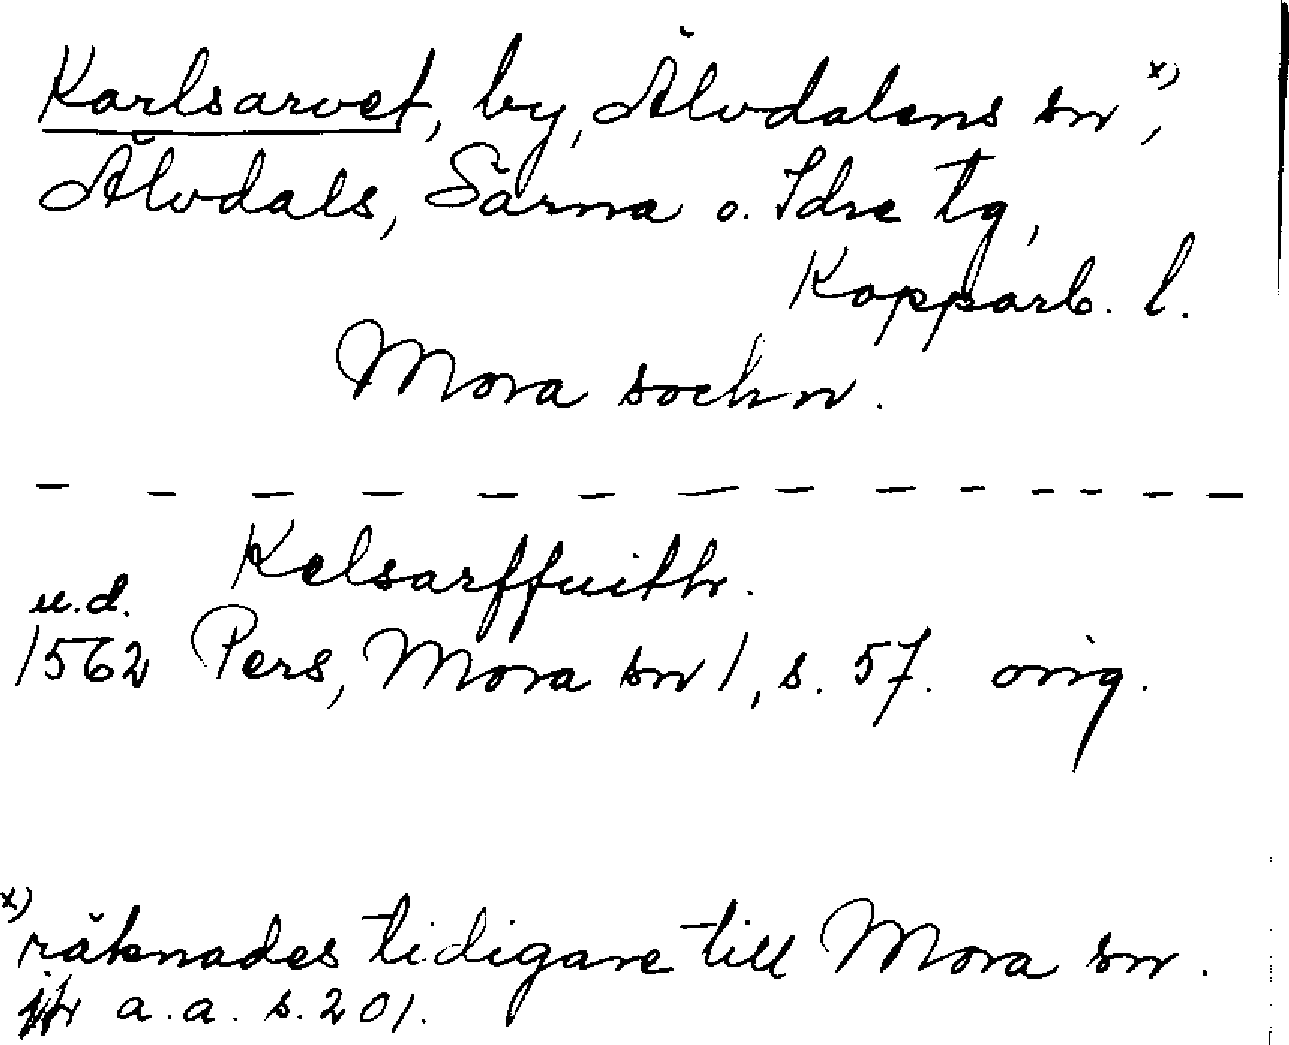 Karlsarvet, by, Älvdalens sn x),
Älvdals, Särna o. Idre tg,
Kopparb. l.
Mora sochn.
Kelsarffuithr.
u.d.
1562 Pers, Mora sn 1, s. 57. orig.
x) räknades tidigare till Mora sn.
jfr a.a. s. 201.